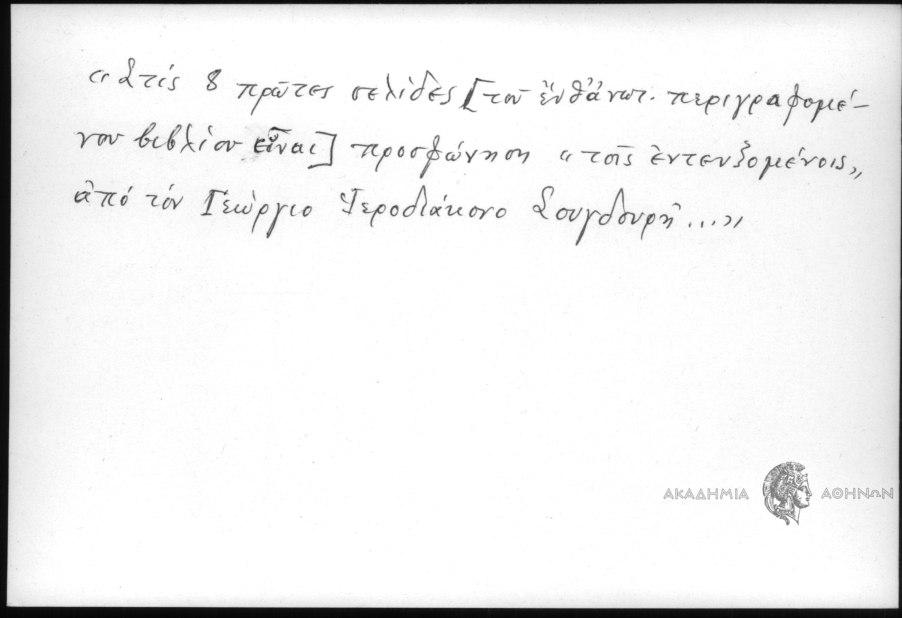 «Στίς 8 πρῶτες σελίδες [τοῦ ἔνθ' ἀνωτ. περιγραφομέ-
νου βιβλίου εἶναι] προσφώνηση «τοῖς ἐντευξομένοις»
ἀπό τόν Γεώργιο Ἱεροδιάκονο Σουγδουρῆ...»
ΑΚΑΔΗΜΙΑ ΑΘΗΝΩΝ